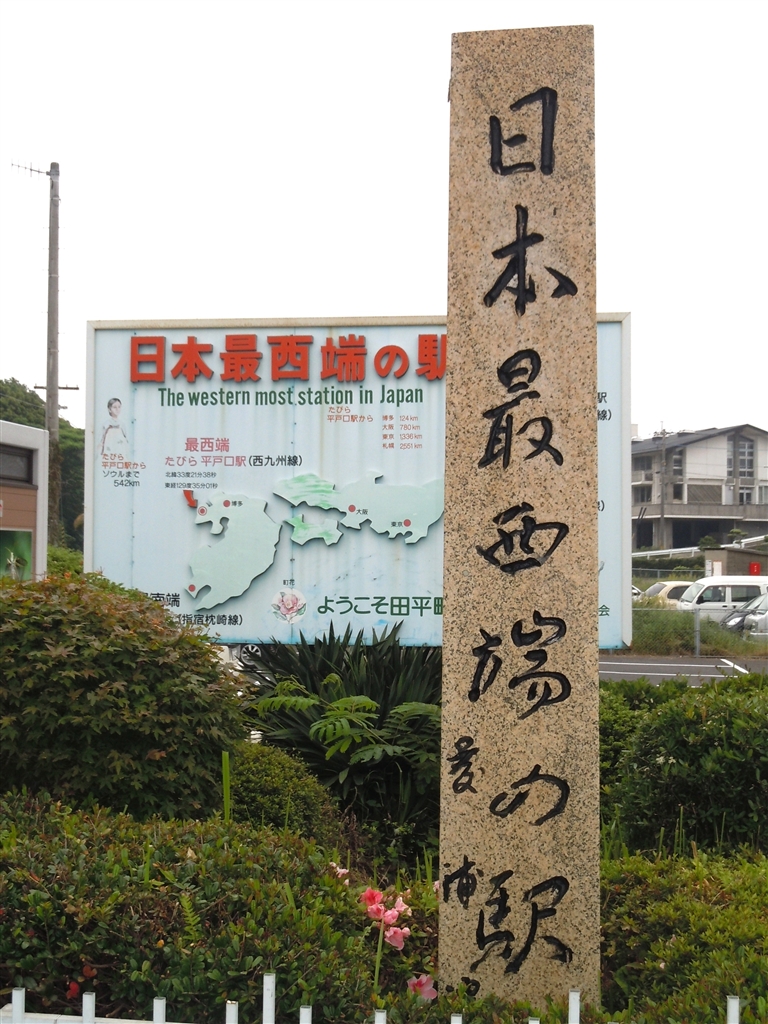 日本最西端の駅
日本最西端の駅
The western most station in Japan
たびら
平戸口駅から
博多 124km
大阪 780km
東京 1,336km
札幌 2551km
たびら
平戸口駅から
ソウルまで
542km
最西端
たびら平戸口駅(西九州線)
北緯33度21分38秒
東経129度35分01秒
博多
大阪
東京
町花
ようこそ田平町
(指宿枕崎線)
駅
会